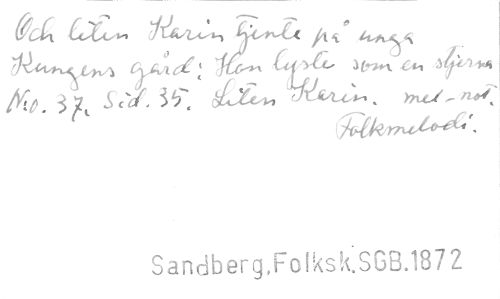 Och liten Karin tjente på unga
Kungens gård: Hon lyste som en stjerna
N:o. 37. Sid. 35. Liten Karin. mel-not.
Folkmelodi.
Sandberg,Folksk.SGB.1872